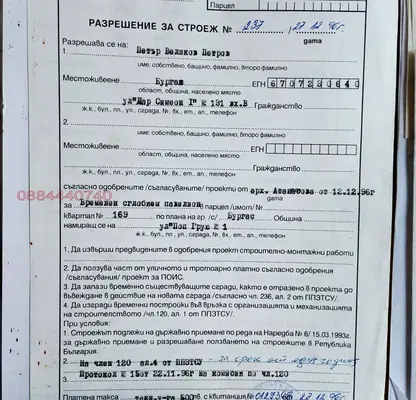 Парцел
РАЗРЕШЕНИЕ ЗА СТРОЕЖ № 237 / 27.12.96г.
дата
Разрешава се на:
1. Петър Великов Петров
име: собствено, бащино, фамилно, второ фамилно
Местоживеене Бургас ЕГН 6707230640
област, община, населено място
ул"Цар Симеон I" № 131 вх.В Гражданство
ж.к., бул., пл., ул., сграда, №, вх., ет., ап., телефон
2.
име: собствено, бащино, фамилно, второ фамилно
Местоживеене ЕГН
област, община, населено място
Гражданство
ж.к., бул., пл., ул., сграда, №, вх., ет., ап., телефон
0884440740
съгласно одобрените /съгласуваните/ проекти от арх. Атанасова от 12.12.96г
дата
за Временен сглобяем павилион в парцел /имот/
квартал № 169 по плана на гр. /с/ Бургас Община
намиращ се на ул"Поп Грую № 1
ж.к., бул., пл., ул., сграда, №, вх., ет., ап., телефон
1. Да извърши предвидените в одобрения проект строително-монтажни работи
2. Да ползува част от уличното и тротоарно платно съгласно одобрения /съгласувания/ проект за ПОИС.
3. Да запази временно съществуващите сгради, както е отразено в проекта до въвеждане в действие на новата сграда /съгласно чл. 236, ал. 2 от ППЗТСУ/.
4. Да изгради временни постройки във връзка с организацията и механизацията на строителството /чл.120, ал. 1 от ППЗТСУ/.
При условия:
1. Строежът подлежи на държавно приемане по реда на Наредба № 6/ 15.03.1993г. за държавно приемане и разрешаване ползването на строежите в Република България.
2. На член 120 ал.4 от ППЗТСУ - за срок от една година
Протокол № 15от 22.11.96г на комисия по чл.120
Платена такса 500 лв. с квитанция № 27.12.96г.